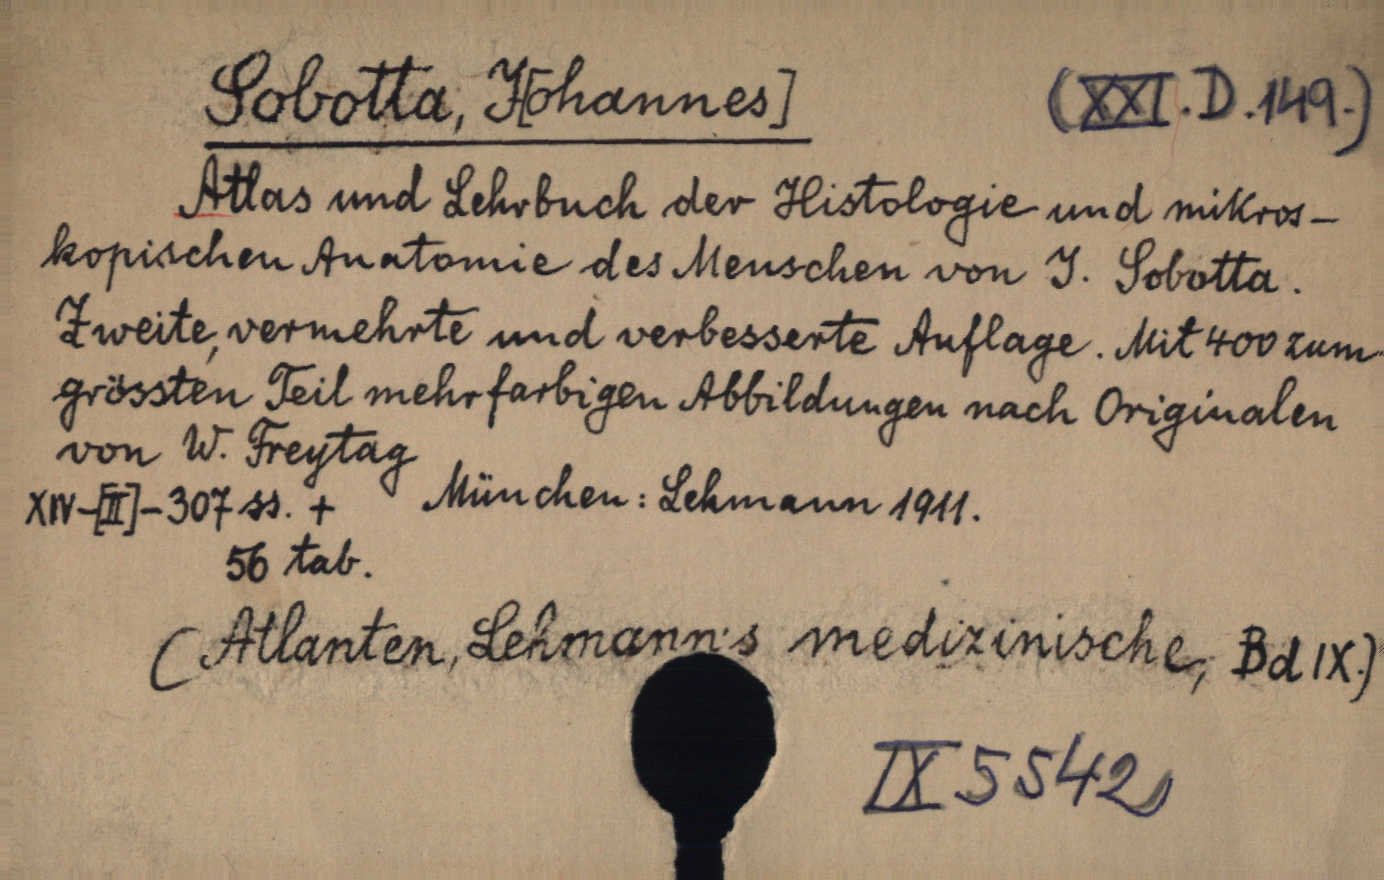 Sobotta, J[ohannes] (XXI.D.149.)
Atlas und Lehrbuch der Histologie und mikros-
kopischen Anatomie des Menschen von J. Sobotta.
Zweite, vermehrte und verbesserte Auflage. Mit 400 zum
grössten Teil mehrfarbigen Abbildungen nach Originalen
von W. Freytag
XIV-[II]-307 ss. + München: Lehmann 1911.
56 tab.
(Atlanten, Lehmann's medizinische, Bd IX.)
IX 5542